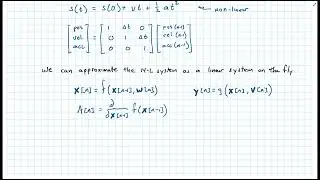 s(t) = s(0) + vt + ½ at² non-linear
[pos vel acc] = [1 Δt 0; 0 1 Δt; 0 0 1] [pos(n-1) vel(n-1) acc(n-1)]
We can approximate the N-L system as a linear system on the fly.
x[n] = f(x[n-1], w[n]) y[n] = g(x[n], v[n])
A[n] = ∂/∂x[n-1] f(x[n-1])